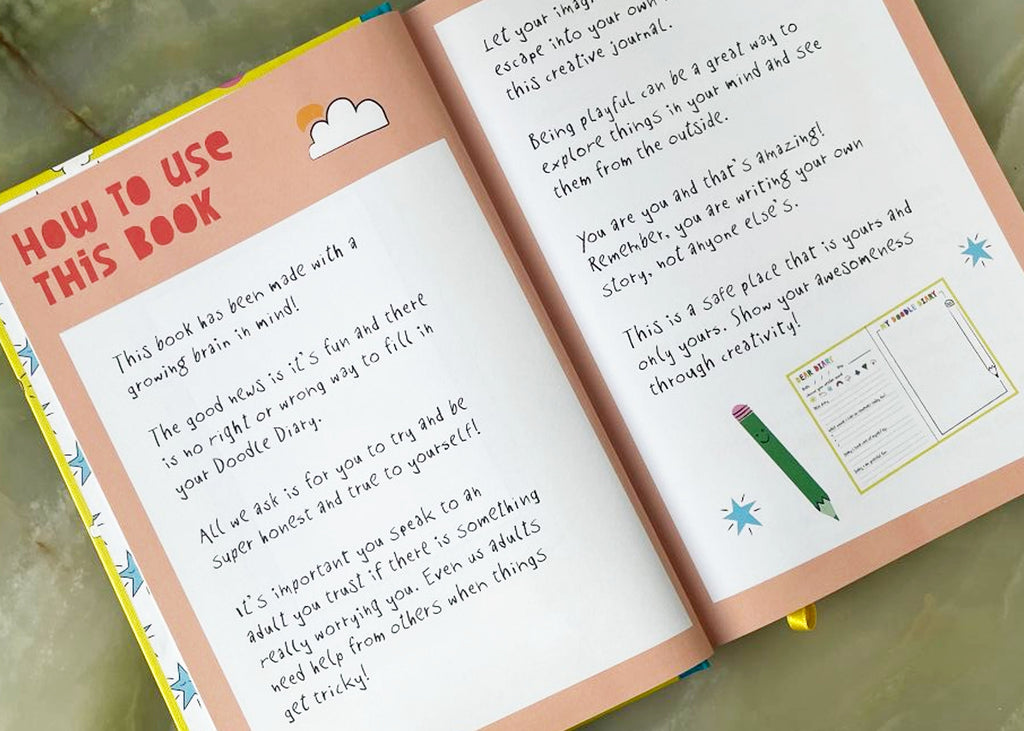 HOW TO USE
THIS BOOK
This book has been made with a
growing brain in mind!
The good news is it's fun and there
is no right or wrong way to fill in
your Doodle Diary.
All we ask is for you to try and be
super honest and true to yourself!
It's important you speak to an
adult you trust if there is something
really worrying you. Even us adults
need help from others when things
get tricky!
Let your
escape into your own
this creative journal.
Being playful can be a great way to
explore things in your mind and see
them from the outside.
You are you and that's amazing!
Remember, you are writing your own
story, not anyone else's.
This is a safe place that is yours and
only yours. Show your awesomeness
through creativity!
DEAR DIARY
MY DOODLE DIARY